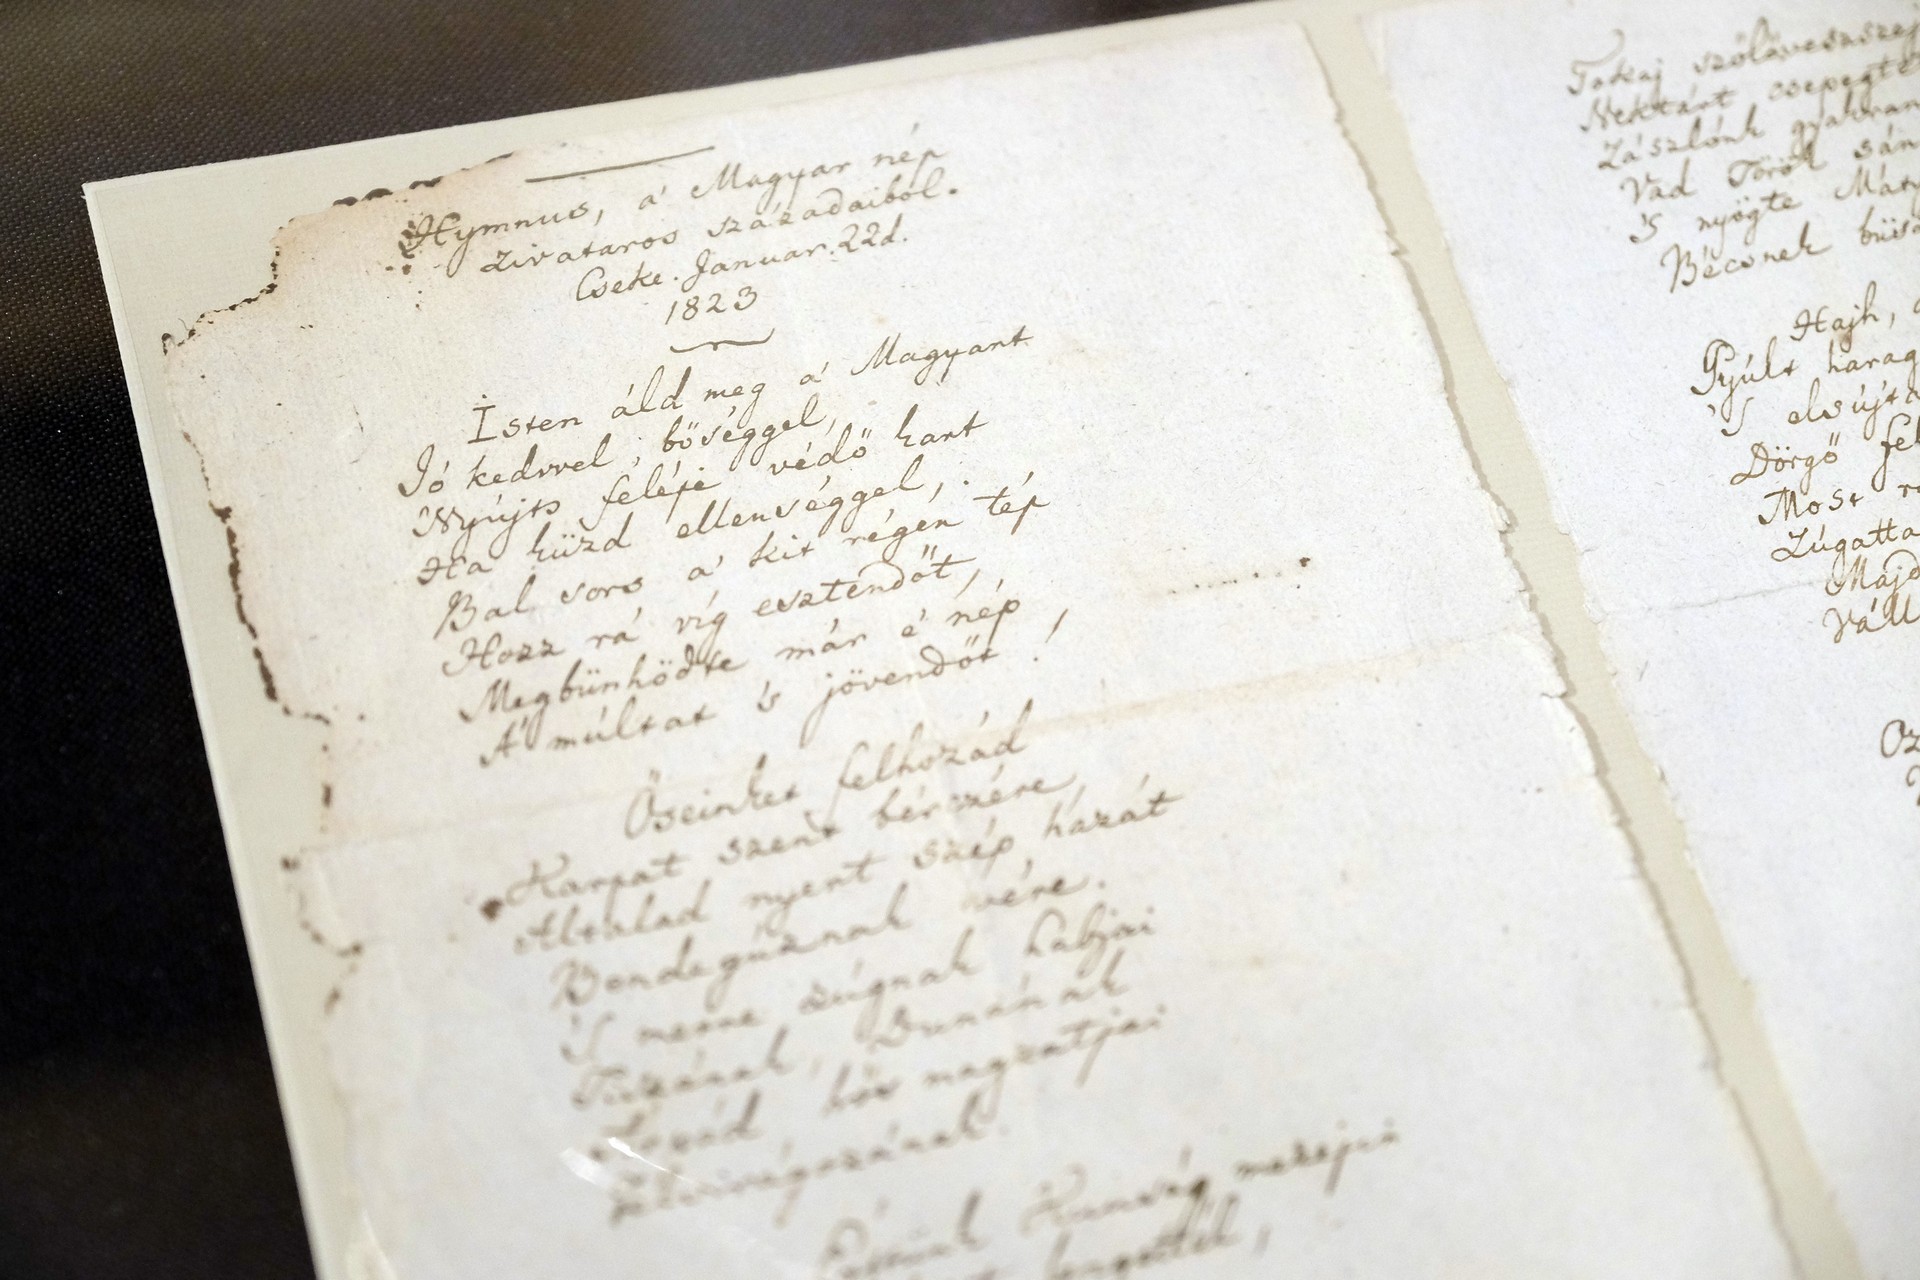 Hymnus, a' Magyar nép
zivataros századaiból.
Cseke. Januar. 22d.
1823
Isten áld meg a' Magyart
Jó kedvvel, bőséggel,
Nyújts feléje védő kart
Ha küzd ellenséggel,
Bal sors a' kit régen tép
Hozz rá víg esztendőt,
Megbűnhödte már é nép
A' múltat 's jövendőt!
Őseinket felhozád
Karpat szent bérczére,
Általad nyert szép hazát
Bendegúznak vére.
'S merre zúgnak habjai
Tiszának, Dunának
Árpád hős magzatjai
Felvirágozának.
Értünk Kunság mezejin
lengettél,
Tokaj szőlővesszej
Nektárt csepegte
Zászlónk gyakran
Vad Török sán
'S nyögte Máty
Bécsnek büsz
Hajh,
Gyúlt harag
'S elsújta
Dörgő fel
Most
Zúgatta
Majd
Váll